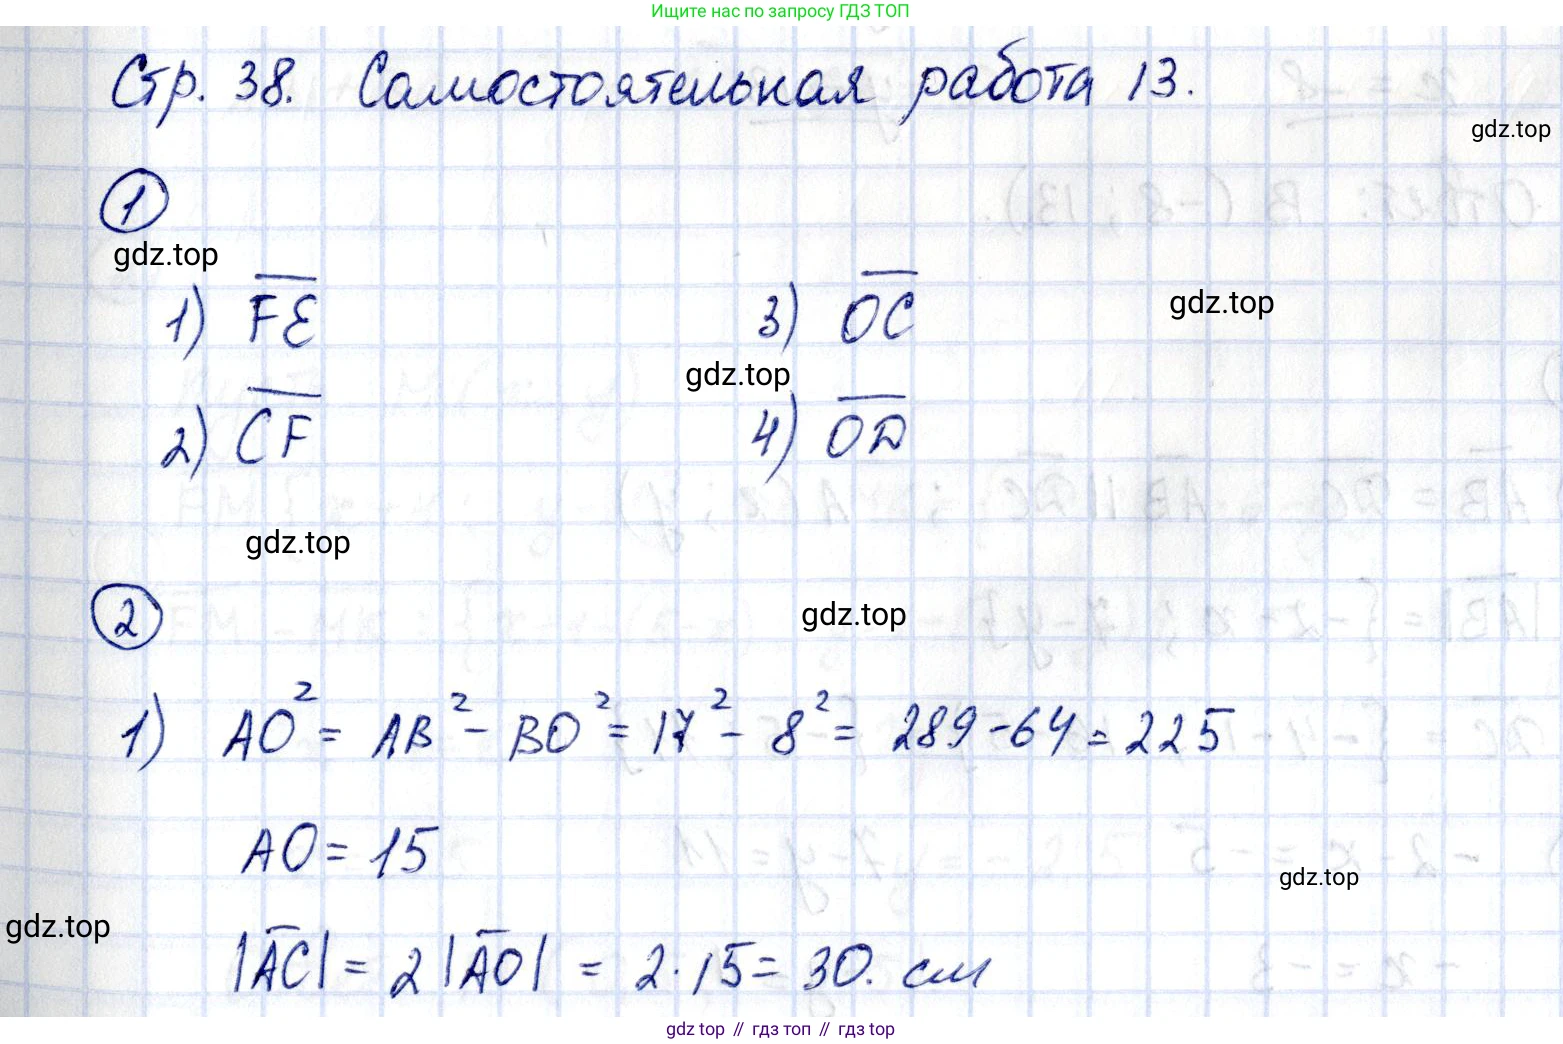 Ищите нас по запросу ГДЗ ТОП
Стр. 38. Самостоятельная работа 13.
gdz.top
1
gdz.top
1) FE
3) OC
gdz.top
gdz.top
2) CF
4) OD
gdz.top
2
gdz.top
1) AO² = AB² - BO² = 17² - 8² = 289 - 64 = 225
AO = 15
gdz.top
gdz.top
|AC| = 2 |AO| = 2 · 15 = 30. см
gdz top // гдз топ // гдз top